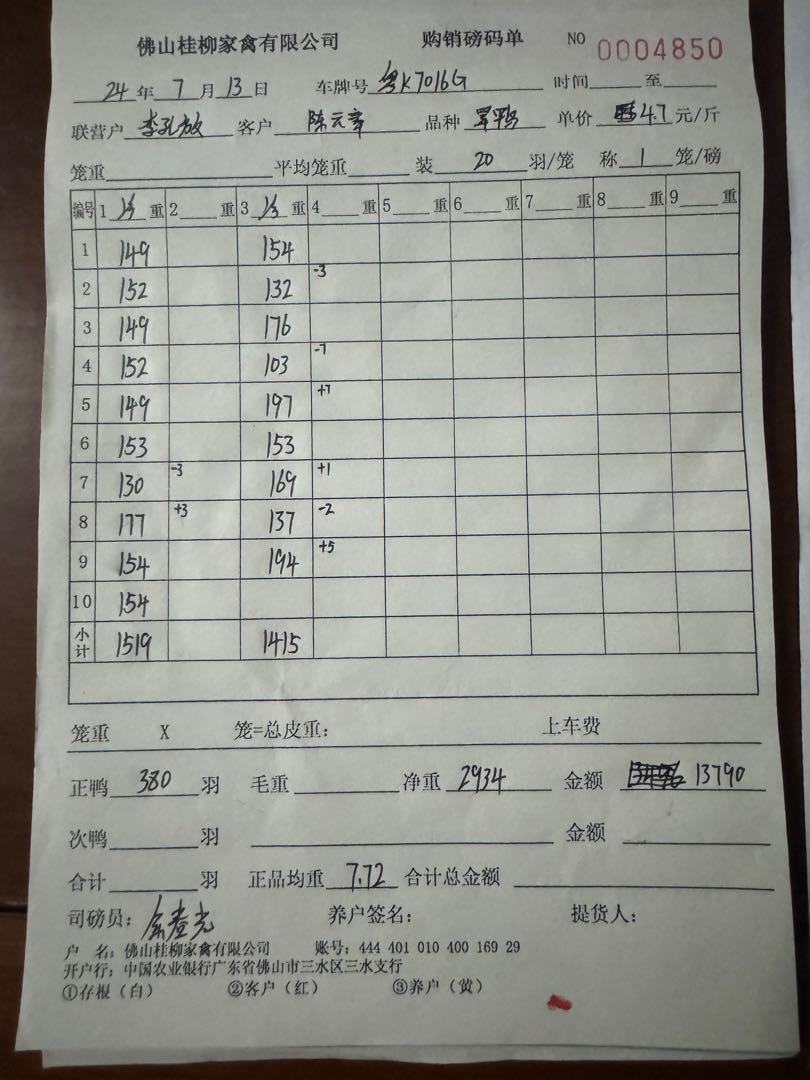 佛山桂柳家禽有限公司 购销磅码单 NO 0004850
24年7月13日 车牌号 粤K7016G 时间____至____
联营户 李孔放 客户 陈云章 品种 单价 4.7 元/斤
笼重____ 平均笼重____ 装 20 羽/笼 称 1 笼/磅
编号 1 净 重 2____重 3 净 重 4____重 5____重 6____重 7____重 8____重 9____重
1 149 154
2 152 132 -3
3 149 176
4 152 103 -7
5 149 197 +7
6 153 153
7 130 -3 169 +1
8 177 +3 137 -2
9 154 194 +5
10 154
小计 1519 1415
笼重 X 笼=总皮重: 上车费
正鸭 380 羽 毛重____ 净重 2934 金额 13790
次鸭____羽 ____ 金额____
合计____羽 正品均重 7.72 合计总金额____
司磅员: 养户签名: 提货人:
户 名: 佛山桂柳家禽有限公司 账号: 444 401 010 400 169 29
开户行: 中国农业银行广东省佛山市三水区三水支行
①存根(白) ②客户(红) ③养户(黄)